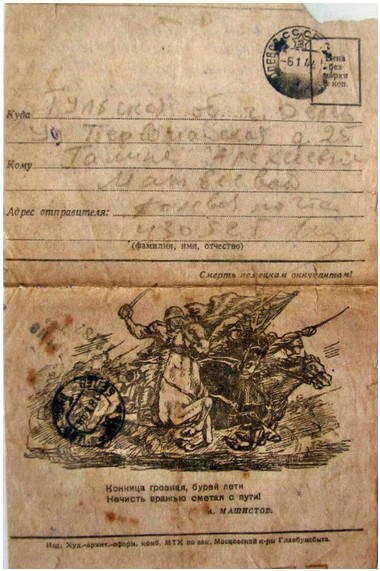 СССР
-6 1 44
Цена
без
марки
коп.
Куда Тульская об. г. Венев
ул Первомайская д. 25
Кому Галине Алексеевне
Матвеевой
Адрес отправителя: Полевая почта
(фамилия, имя, отчество)
Смерть немецким оккупантам!
Конница грозная, бурей лети
Нечисть вражью сметая с пути!
А. МАШИСТОВ.
Изд. Худ.-архит.-оформ. комб. МТХ по зак. Московской к-ры Главбумсбыта.